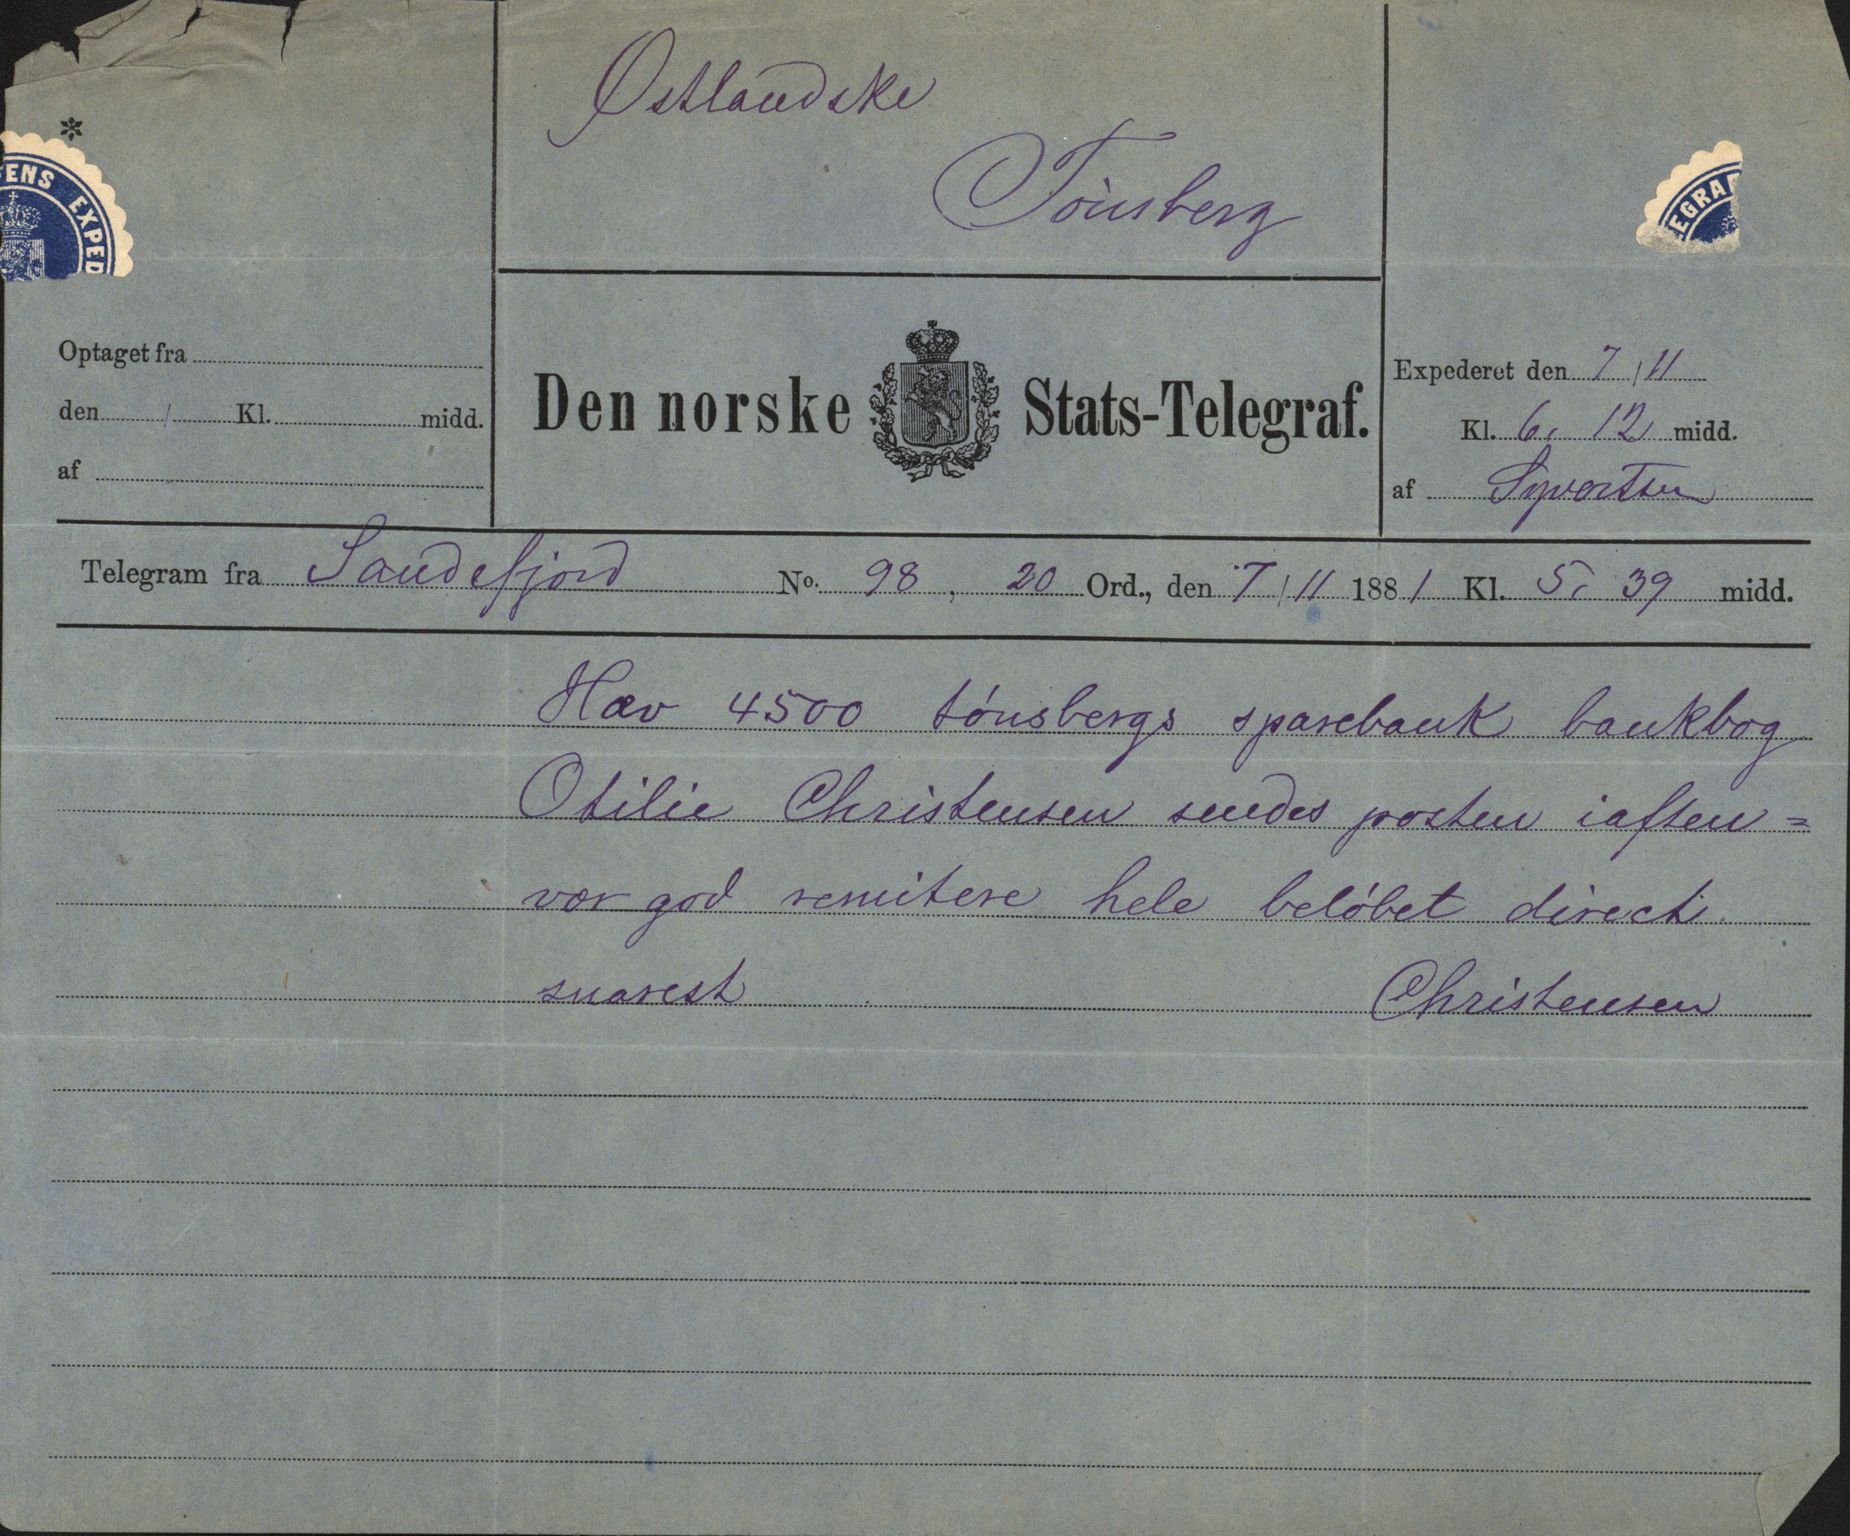 Østlandske
Tónsberg
*
FENS EXPED
EGRA
Optaget fra
den / Kl. midd.
af
Den norske Stats-Telegraf.
Expederet den 7/11
Kl. 6. 12 midd.
af Syvertsen
Telegram fra Sandefjord No. 98, 20 Ord., den 7/11 1881 Kl. 5. 39 midd.
Hæv 4500 tónsbergs sparebank bankbog
Otilie Christensen sendes posten iaften =
vær god remitere hele belóbet direct
snarest Christensen